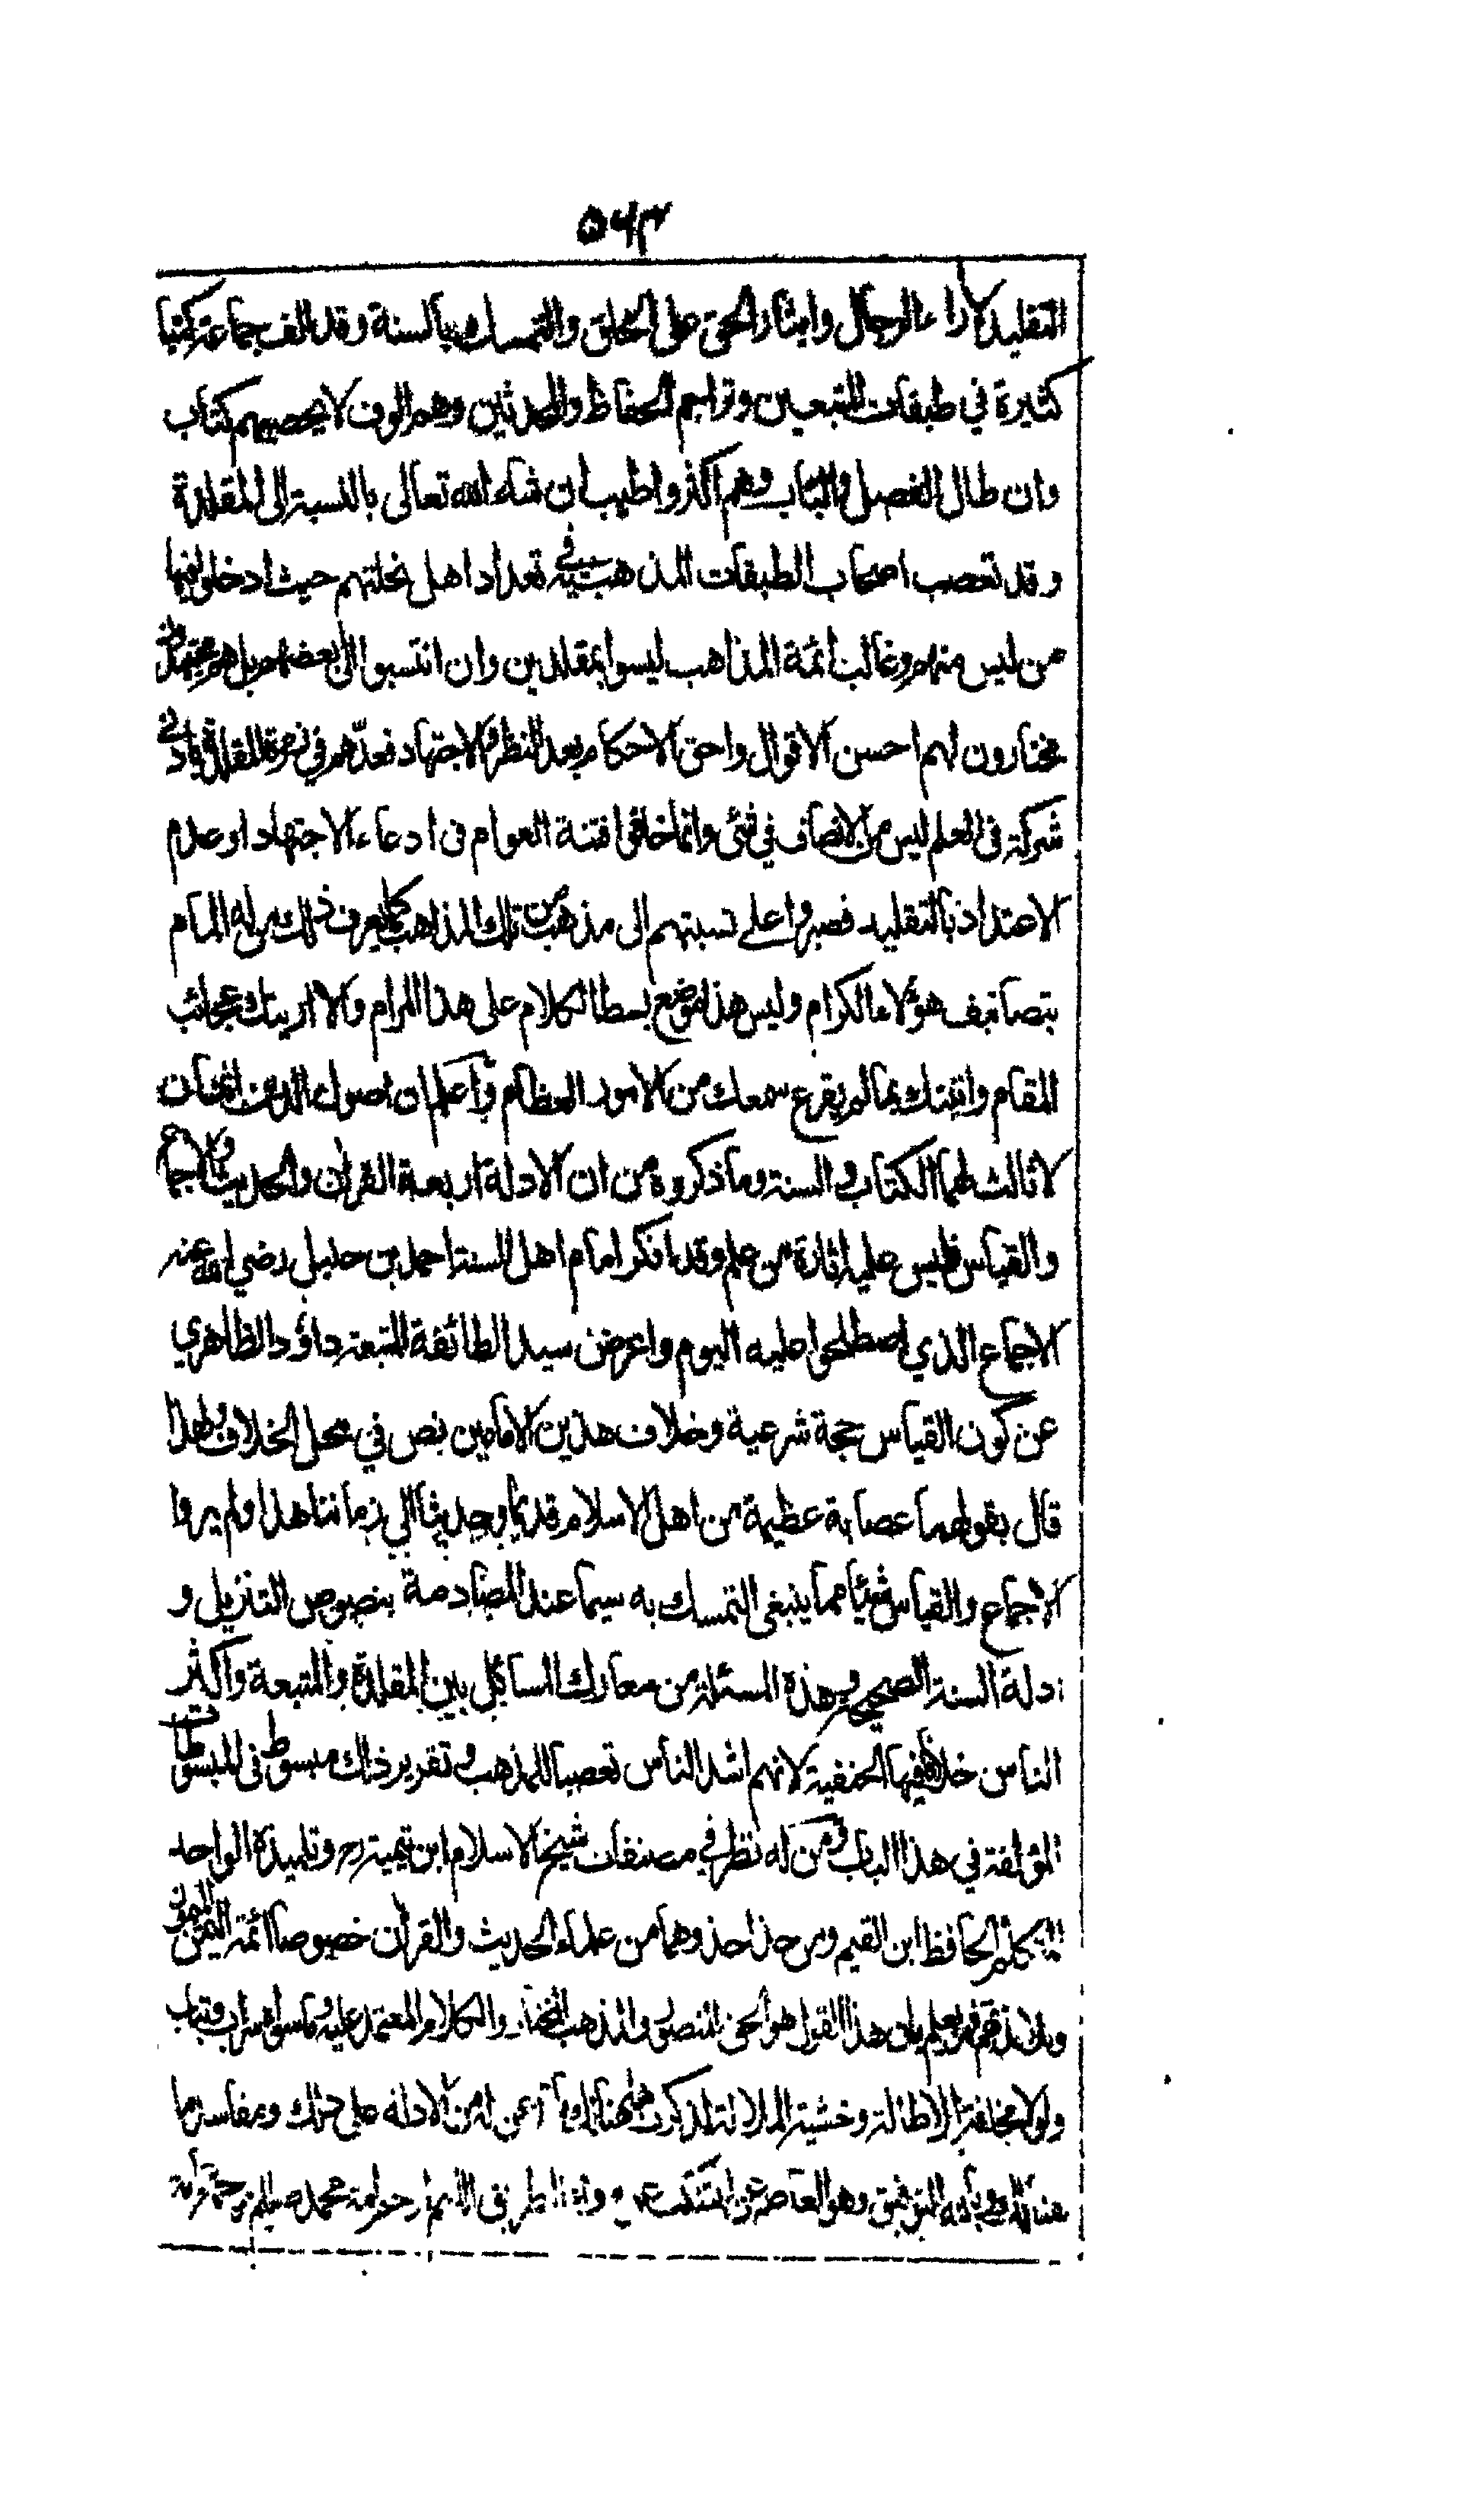 ۵۶۳
التقليد لآراء الرجال وايثار الحق على الخلق والتمسك بالسنة وقد الف جماعة كتبا
كثيرة في طبقات المتبعين وتراجم الحفاظ والمحدثين وهم الوف لا يحصيهم كتاب
وان طال الفصل والباب وهم اكثر واطيب ان شاء الله تعالى بالنسبة الى المقلدة
وقد تعصب اصحاب الطبقات المذهبية في تعداد اهل نحلتهم حيث ادخلوا فيها
من ليس منهم وغالب ائمة المذاهب ليسوا بمقلدين وان انتسبوا الى بعضهم بل هم مجتهدون
مختارون لهم احسن الاقوال واحق الاحكام بعد النظر والاجتهاد فعدّهم في زمرة المقلدة بادنى
شركة في العلم ليس من الانصاف في شئ وانما خافوا فتنة العوام في ادعاء الاجتهاد او عدم
الاعتداد بالتقليد فصبروا على نسبتهم الى مذهب من تلك المذاهب كما يعرف ذلك من له المام
بتصانيف هؤلاء الكرام وليس هذا موضع بسط الكلام على هذا المرام والا اريتك عجائب
المقام واتيتك بما لم يقرع سمعك من الامور العظام واعلم ان اصول الدين اثنان
لا ثالث لهما الكتاب والسنة وما ذكروه من ان الادلة اربعة القرآن والحديث والاجماع
والقياس فليس عليه اثارة من علم وقد انكر امام اهل السنة احمد بن حنبل رضي الله عنه
الاجماع الذي اصطلحوا عليه اليوم واعرض سيد الطائفة المتبعة داؤد الظاهري
عن كون القياس حجة شرعية وخلاف هذين الامامين نص في محل الخلاف ولهذا
قال بقولهما عصابة عظيمة من اهل الاسلام قديما وحديثا الى زماننا هذا ولم يروا
الاجماع والقياس شيئا مما ينبغي التمسك به سيما عند المصادمة بنصوص التنزيل و
ادلة السنة الصحيحة وهذه المسئلة من معارك المسائل بين المقلدة والمتبعة واكثر
الناس خلافا فيها الحنفية لانهم اشد الناس تعصبا للمذهب وتقرير ذلك مبسوط في المبسوطات
المؤلفة في هذا الباب ومن له نظر في مصنفات شيخ الاسلام ابن تيمية رح وتلميذه الواحد
المتكلم الحافظ ابن القيم ومن حذا حذوهما من علماء الحديث والقرآن خصوصا ائمة اليمن الميمون
وتلامذتهم فهو يعلم بان هذا القول هو الحق المنصور والمذهب المختار والكلام المعتمد عليه وما سواه سراب وتباب
ولولا مخافة الاطالة وخشية الملالة لذكرت ههنا من الادلة على ذلك ومفاسد ما
هنالك وبالله التوفيق وهو العاصم عن